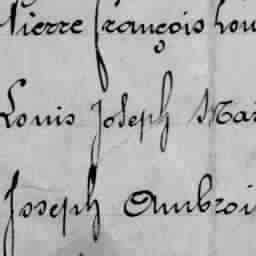 Pierre françois Lou
Louis Joseph Mar
Joseph Ambroi